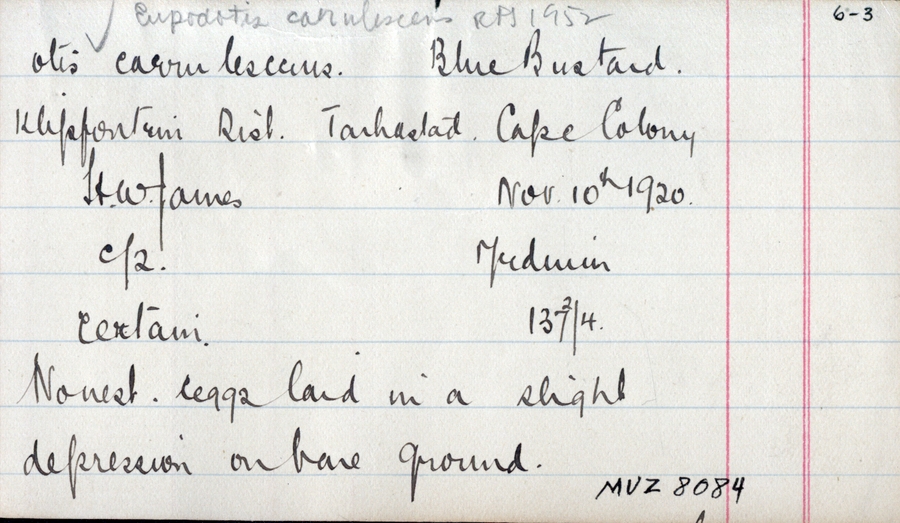 Eupodotis caerulescens RAJ 1952
6-3
Otis caerulescens. Blue Bustard.
Klipfontein Dist. Tarkastad. Cape Colony
H.W. James Nov. 10th 1920.
c/2. Medium
Certain. 137 2/4.
No nest. Eggs laid in a slight
depression on bare ground.
MVZ 8084